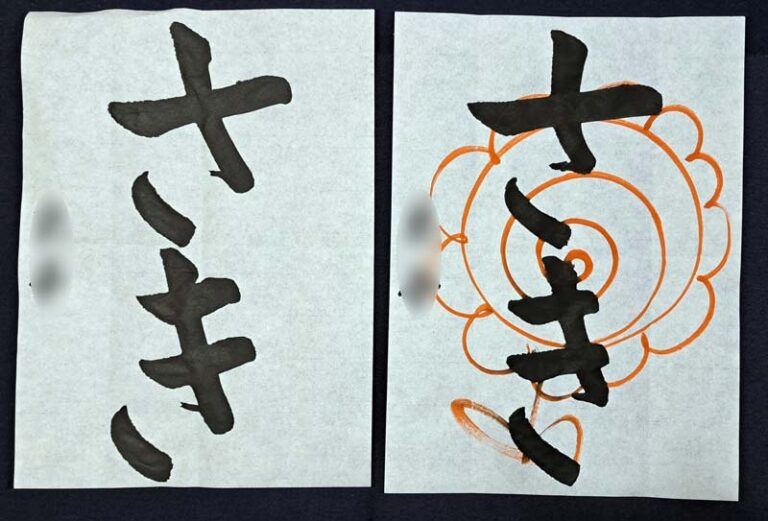 さき
さき